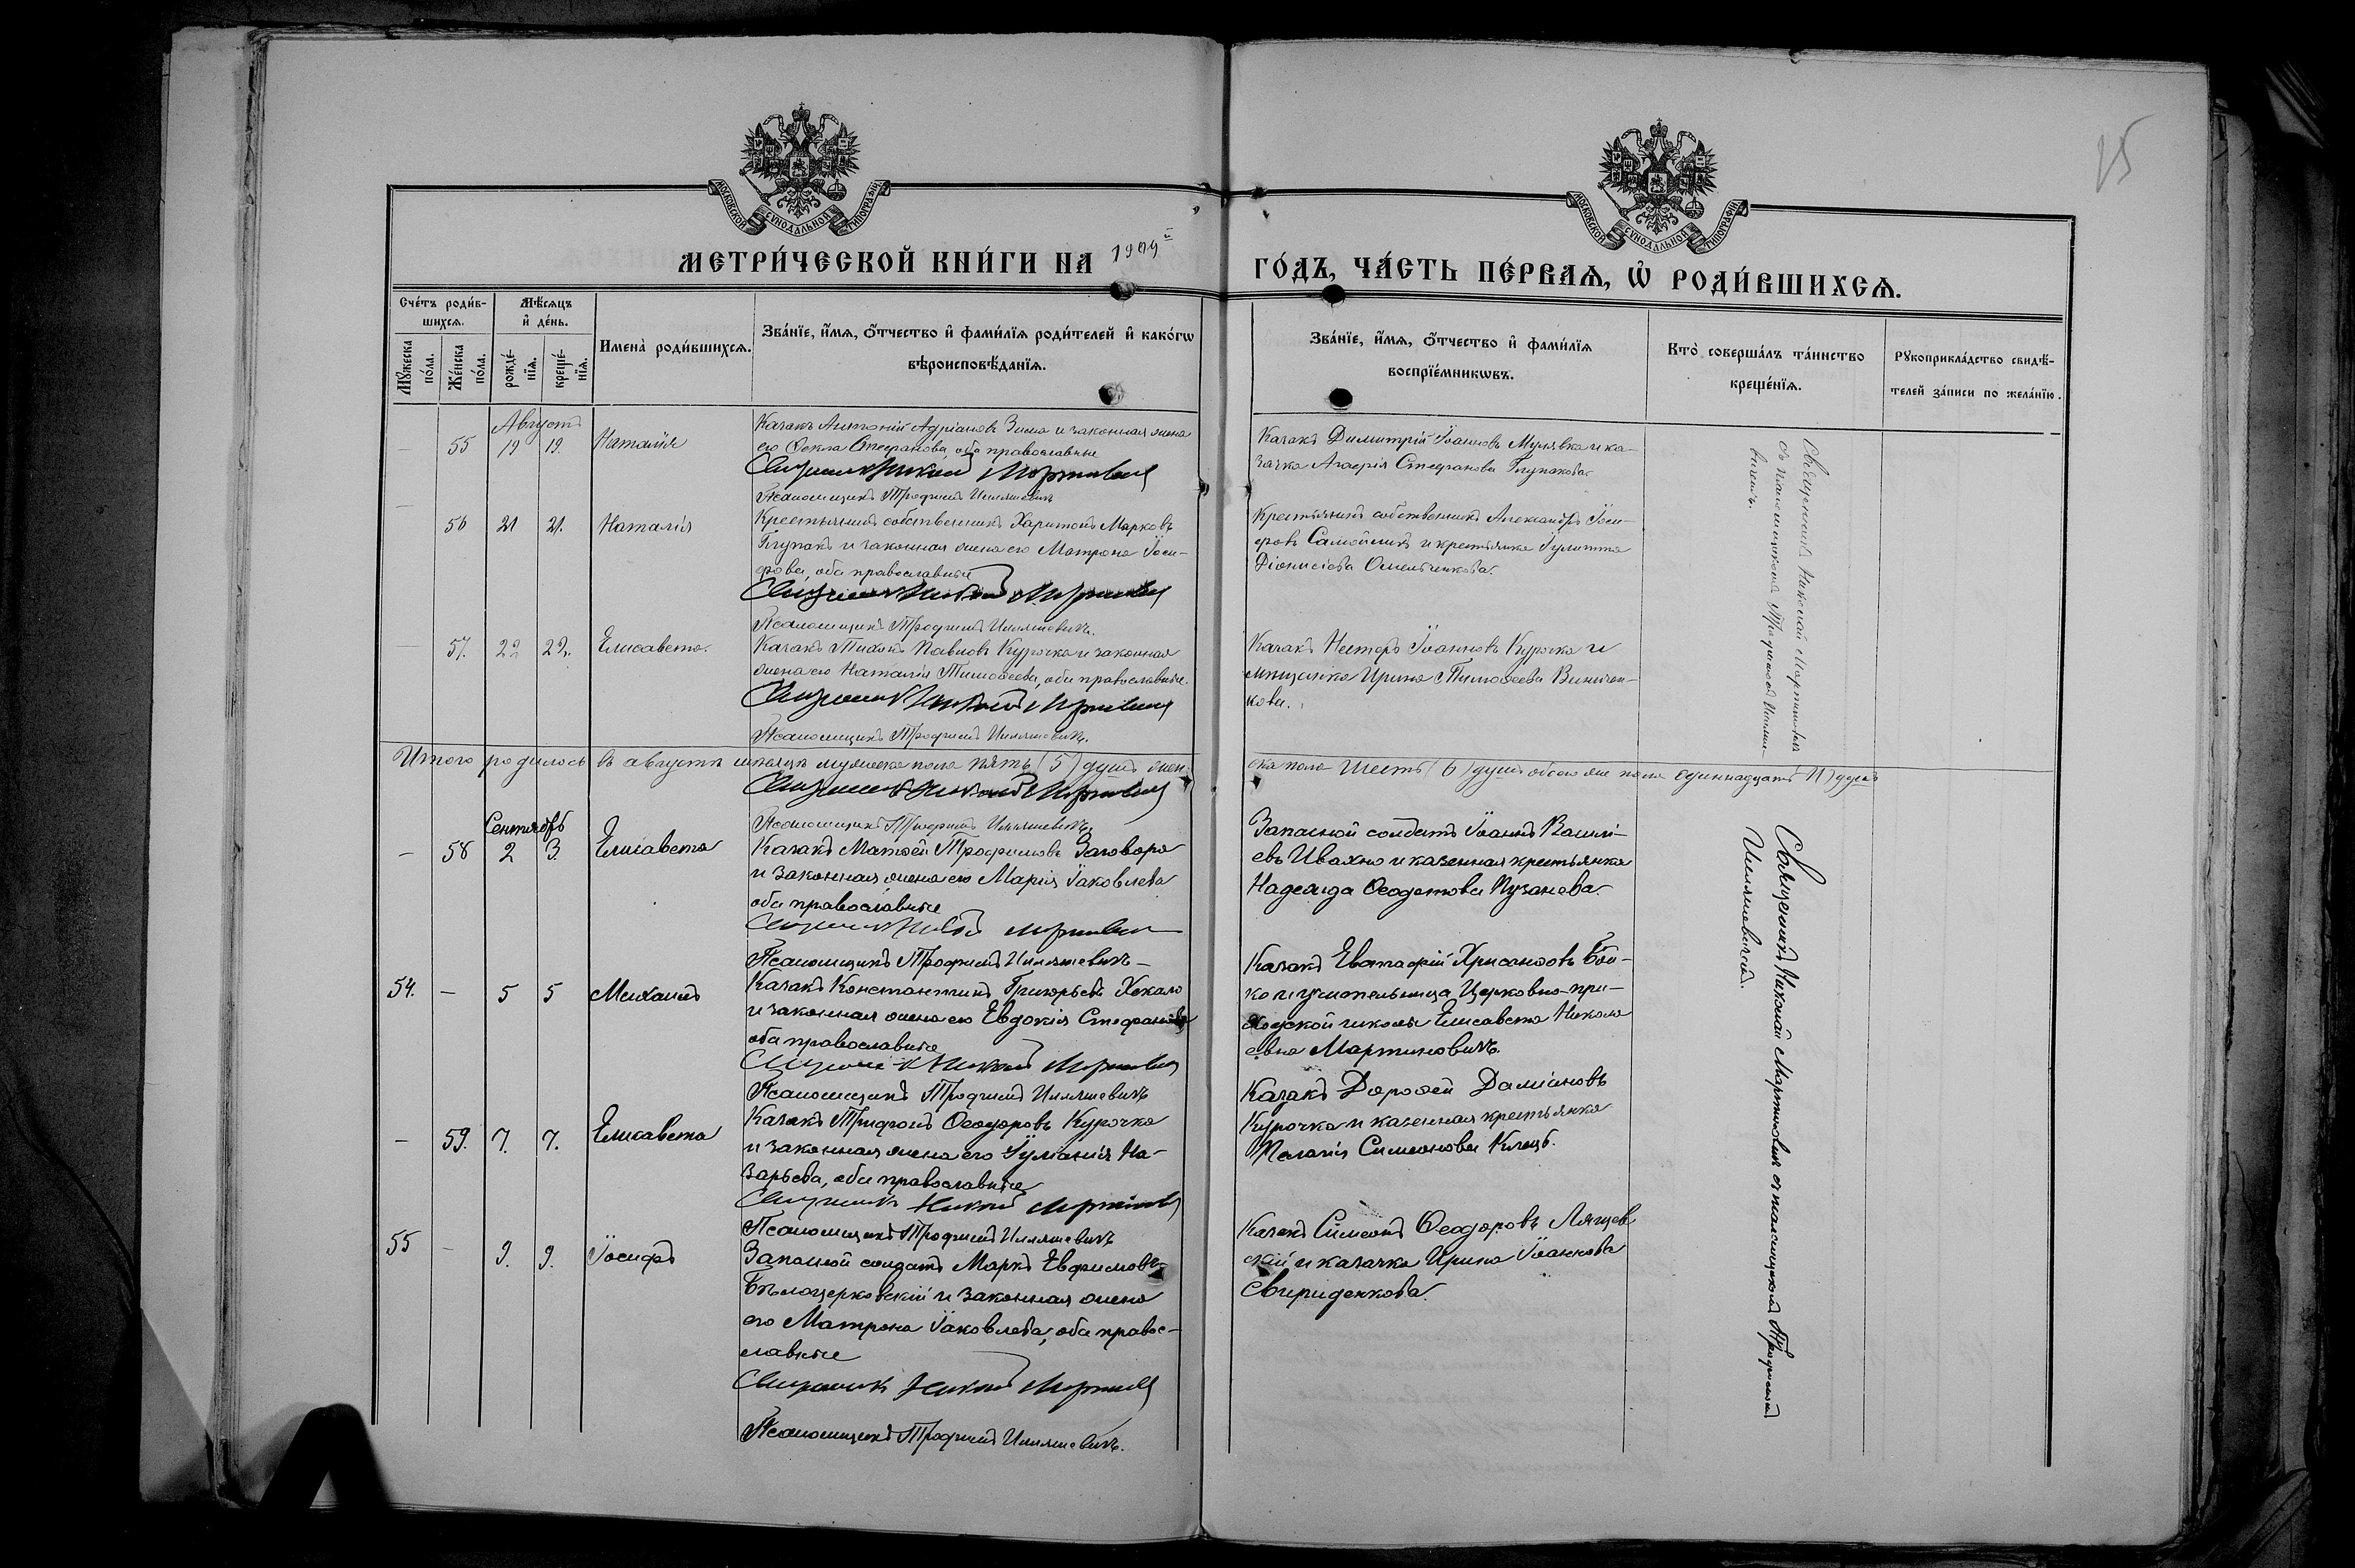 25
МОСКОВСКОЙ СѴНОДАЛЬНОЙ ТИПОГРАФІИ
МОСКОВСКОЙ СѴНОДАЛЬНОЙ ТИПОГРАФІИ
МЕТРИ́ЧЕСКОЙ КНИ́ГИ НА 1909 й
ГО́ДЪ, ЧА́СТЬ ПЕ́РВАѦ, Ѡ҆ РОДИ́ВШИХСѦ.
Сче́тъ роди́в-
шихсѧ.
Мꙋ́жеска по́ла.
Же́нска по́ла.
Мѣ́сѧцъ
и҆ де́нь.
рожде́-
нїѧ.
креще́-
нїѧ.
Имена̀ роди́вшихсѧ.
Зва́нїе, и҆́мѧ, ѻ҆́тчество и҆ фами́лїѧ роди́телей и҆ како́гѡ
вѣроисповѣ́данїѧ.
Зва́нїе, и҆́мѧ, ѻ҆́тчество и҆ фами́лїѧ
воспрїе́мникѡвъ.
Кто̀ соверша́лъ та́инство
креще́нїѧ.
Рꙋкоприкла́дство свидѣ́-
телей за́писи по жела́нїю.
Августъ
— 55 19 19. Наталія
Казакъ Антоній Адріановъ Зима и законная жена
его Ѳекла Стефанова, оба православные
Священникъ Николай Мартиновичъ
Псаломщикъ Трофимъ Илляшевичъ
Казакъ Димитрій Іоанновъ Мулявка и ка-
зачка Агаѳія Стефанова Глупакова
Священникъ Николай Мартиновичъ
съ псаломщикомъ Трофимомъ Илляше-
вичемъ.
— 56 21 21. Наталія
Крестьянинъ собственникъ Харитонъ Марковъ
Глупакъ и законная жена его Матрона Іоси-
фова, оба православные
Священникъ Николай Мартиновичъ
Псаломщикъ Трофимъ Илляшевичъ.
Крестьянинъ собственникъ Александръ Іоси-
фовъ Самойликъ и крестьянка Іулитта
Діонисіева Омельченкова.
— 57. 22 22. Елисавета.
Казакъ Тихонъ Павловъ Курочка и законная
жена его Наталія Тимоѳеева, оба православные.
Священникъ Николай Мартиновичъ
Псаломщикъ Трофимъ Илляшевичъ.
Казакъ Несторъ Іоанновъ Курочка и
мѣщанка Ирина Тимоѳеева Виничен-
кова.
Итого родилось въ августѣ мѣсяцѣ мужеска пола пять (5) душъ жен-
ска пола шесть (6) душъ обоего же пола одиннадцать (11) душъ
Священникъ Николай Мартиновичъ
Псаломщикъ Трофимъ Илляшевичъ.
Сентябрь
— 58 2 3. Елисавета
Казакъ Матѳей Трофимовъ Заговора
и законная жена его Марія Іаковлева
оба православные
Священникъ Николай Мартиновичъ
Псаломщикъ Трофимъ Илляшевичъ
Запасной солдатъ Іоаннъ Василі-
евъ Ивахно и казенная крестьянка
Надежда Ѳеодотова Пузанева.
Священникъ Николай Мартиновичъ съ псаломщикомъ Трофимомъ
Илляшевичемъ.
54. — 5 5 Михаилъ
Казакъ Константинъ Григорьевъ Хокало
и законная жена его Евдокія Стефанова
оба православные
Священникъ Николай Мартиновичъ
Псаломщикъ Трофимъ Илляшевичъ
Казакъ Евстафій Хрисанѳовъ Бой-
ко и учительница Церковно-при-
ходской школы Елисавета Никола
евна Мартиновичъ.
— 59. 7. 7. Елисавета
Казакъ Трифонъ Ѳеодоровъ Курочка
и законная жена его Іуліанія На-
зарьева, оба православные
Священникъ Николай Мартиновичъ
Псаломщикъ Трофимъ Илляшевичъ
Казакъ Дороѳей Даміановъ
Курочка и казенная крестьянка
Пелагія Симеонова Клецъ.
55 — 9. 9. Іосифъ
Запасной солдатъ Маркъ Евфимовъ
Бѣлоцерковскій и законная жена
его Матрона Іаковлева, оба право-
славные
Священникъ Николай Мартиновичъ
Псаломщикъ Трофимъ Илляшевичъ.
Казакъ Симеонъ Ѳеодоровъ Лящев
скій и казачка Ирина Іоаннова
Свириденкова.